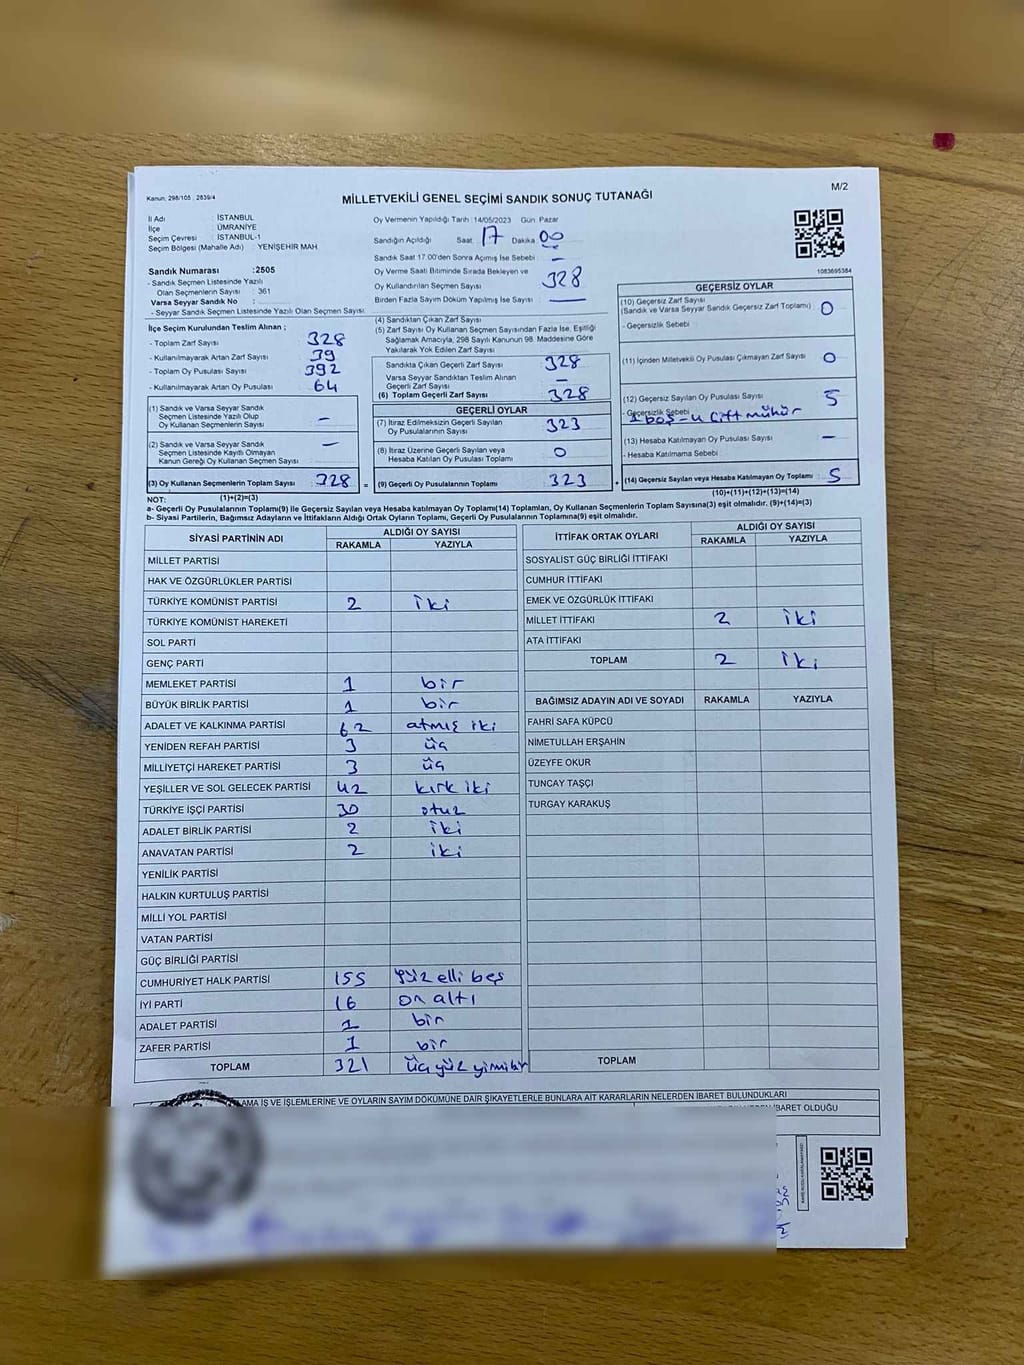 M/2
Kanun: 298/105 ; 2839/4
MİLLETVEKİLİ GENEL SEÇİMİ SANDIK SONUÇ TUTANAĞI
İl Adı : İSTANBUL
İlçe : ÜMRANİYE
Seçim Çevresi : İSTANBUL-1
Seçim Bölgesi (Mahalle Adı) : YENİŞEHİR MAH.
Sandık Numarası :2505
- Sandık Seçmen Listesinde Yazılı
Olan Seçmenlerin Sayısı : 361
Varsa Seyyar Sandık No :
- Seyyar Sandık Seçmen Listesinde Yazılı Olan Seçmen Sayısı:
İlçe Seçim Kurulundan Teslim Alınan ;
- Toplam Zarf Sayısı 328
- Kullanılmayarak Artan Zarf Sayısı 39
- Toplam Oy Pusulası Sayısı 392
- Kullanılmayarak Artan Oy Pusulası 64
(1) Sandık ve Varsa Seyyar Sandık
Seçmen Listesinde Yazılı Olup
Oy Kullanan Seçmenlerin Sayısı –
(2) Sandık ve Varsa Seyyar Sandık
Seçmen Listesinde Kaydı Olmayan
Kanun Gereği Oy Kullanan Seçmen Sayısı –
(3) Oy Kullanan Seçmenlerin Toplam Sayısı 328 =
(1)+(2)=(3)
Oy Vermenin Yapıldığı Tarih :14/05/2023 Gün: Pazar
Sandığın Açıldığı Saat 17 Dakika 00
Sandık Saat 17.00'den Sonra Açımış İse Sebebi –
Oy Verme Saati Bitiminde Sırada Bekleyen ve
Oy Kullandırılan Seçmen Sayısı 328
Birden Fazla Sayım Döküm Yapılmış İse Sayısı —
(4) Sandıktan Çıkan Zarf Sayısı
(5) Zarf Sayısı Oy Kullanan Seçmen Sayısından Fazla İse, Eşitliği
Sağlamak Amacıyla, 298 Sayılı Kanunun 98. Maddesine Göre
Yakılarak Yok Edilen Zarf Sayısı
Sandıkta Çıkan Geçerli Zarf Sayısı 328
Varsa Seyyar Sandıktan Teslim Alınan
Geçerli Zarf Sayısı –
(6) Toplam Geçerli Zarf Sayısı 328
GEÇERLİ OYLAR
(7) İtiraz Edilmeksizin Geçerli Sayılan
Oy Pusulalarının Sayısı 323
(8) İtiraz Üzerine Geçerli Sayılan veya
Hesaba Katılan Oy Pusulası Toplamı 0
(9) Geçerli Oy Pusulalarının Toplamı 323 +
1083695384
GEÇERSİZ OYLAR
(10) Geçersiz Zarf Sayısı
(Sandık ve Varsa Seyyar Sandık Geçersiz Zarf Toplamı) 0
- Geçersizlik Sebebi
(11) İçinden Milletvekili Oy Pusulası Çıkmayan Zarf Sayısı 0
(12) Geçersiz Sayılan Oy Pusulası Sayısı 5
- Geçersizlik Sebebi
1 boş - 4 Çift mühür
(13) Hesaba Katılmayan Oy Pusulası Sayısı –
- Hesaba Katılmama Sebebi
(14) Geçersiz Sayılan veya Hesaba Katılmayan Oy Toplamı 5
(10)+(11)+(12)+(13)=(14)
NOT:
a- Geçerli Oy Pusulalarının Toplamı(9) ile Geçersiz Sayılan veya Hesaba katılmayan Oy Toplamı(14) Toplamları, Oy Kullanan Seçmenlerin Toplam Sayısına(3) eşit olmalıdır. (9)+(14)=(3)
b- Siyasi Partilerin, Bağımsız Adayların ve İttifakların Aldığı Ortak Oyların Toplamı, Geçerli Oy Pusulalarının Toplamına(9) eşit olmalıdır.
SİYASİ PARTİNİN ADI ALDIĞI OY SAYISI
RAKAMLA YAZIYLA
MİLLET PARTİSİ
HAK VE ÖZGÜRLÜKLER PARTİSİ
TÜRKİYE KOMÜNİST PARTİSİ 2 iki
TÜRKİYE KOMÜNİST HAREKETİ
SOL PARTİ
GENÇ PARTİ
MEMLEKET PARTİSİ 1 bir
BÜYÜK BİRLİK PARTİSİ 1 bir
ADALET VE KALKINMA PARTİSİ 62 atmış iki
YENİDEN REFAH PARTİSİ 3 üç
MİLLİYETÇİ HAREKET PARTİSİ 3 üç
YEŞİLLER VE SOL GELECEK PARTİSİ 42 kırk iki
TÜRKİYE İŞÇİ PARTİSİ 30 otuz
ADALET BİRLİK PARTİSİ 2 iki
ANAVATAN PARTİSİ 2 iki
YENİLİK PARTİSİ
HALKIN KURTULUŞ PARTİSİ
MİLLİ YOL PARTİSİ
VATAN PARTİSİ
GÜÇ BİRLİĞİ PARTİSİ
CUMHURİYET HALK PARTİSİ 155 Yüz elli beş
İYİ PARTİ 16 on altı
ADALET PARTİSİ 1 bir
ZAFER PARTİSİ 1 bir
TOPLAM 321 üç yüz yirmi bir
İTTİFAK ORTAK OYLARI ALDIĞI OY SAYISI
RAKAMLA YAZIYLA
SOSYALİST GÜÇ BİRLİĞİ İTTİFAKI
CUMHUR İTTİFAKI
EMEK VE ÖZGÜRLÜK İTTİFAKI
MİLLET İTTİFAKI 2 iki
ATA İTTİFAKI
TOPLAM 2 iki
BAĞIMSIZ ADAYIN ADI VE SOYADI RAKAMLA YAZIYLA
FAHRİ SAFA KÜPCÜ
NİMETULLAH ERŞAHİN
ÜZEYFE OKUR
TUNCAY TAŞÇI
TURGAY KARAKUŞ
TOPLAM
LAMA İŞ VE İŞLEMLERİNE VE OYLARIN SAYIM DÖKÜMÜNE DAİR ŞİKAYETLERLE BUNLARA AİT KARARLARIN NELERDEN İBARET BULUNDUKLARI
İBARET OLDUĞU